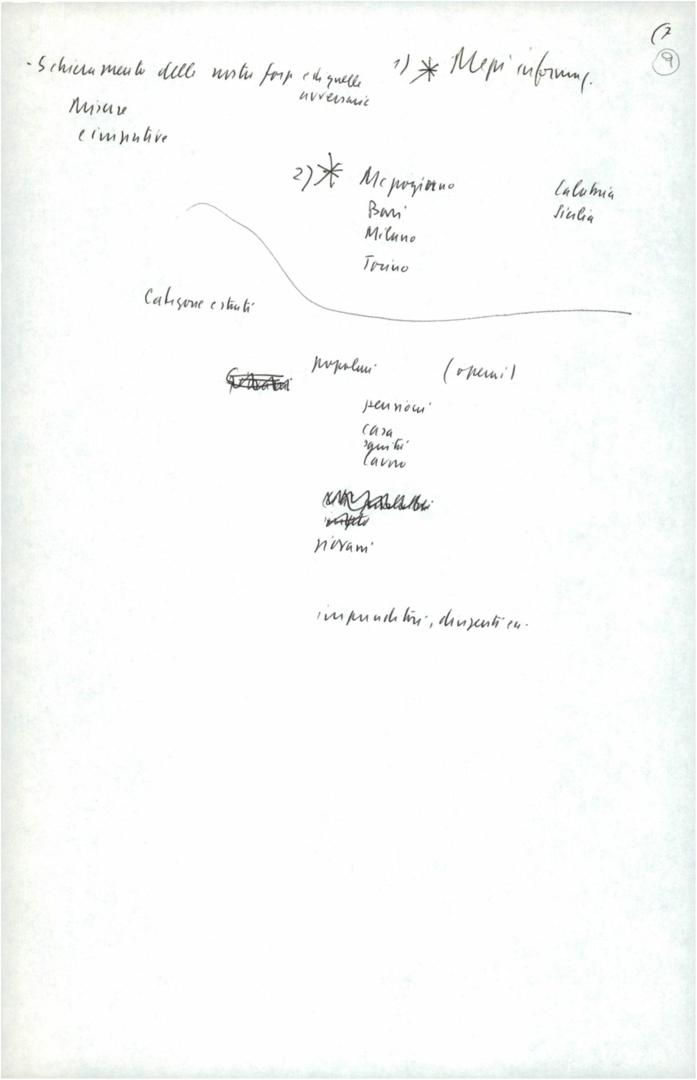 9
- Schieramento delle nostre forze e di quelle
avversarie
1) * Mezzi informaz.
Misure
2) * Mezzogiorno
Bari
Milano
Torino
Calabria
Sicilia
Categorie e strati
popolari (operai)
pensioni
casa
sanità
lavoro
giovani
imprenditori, dirigenti ecc.